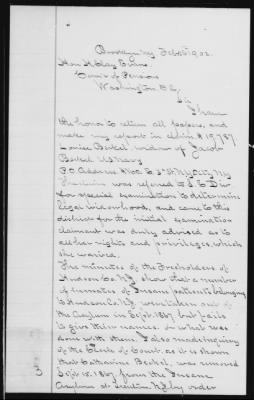 Brooklyn NY Feb 25 1902.
Hon H Clay Evans
Com'r of Pensions
Washington DC
Sir
I have
the honor to return all papers, and
make my report in claim # 19,787
Louise Beckel widow of Jacob
Beckel US Navy
P.O. Address
This claim was referred to S.E. Div
for special examination to determine
legal widowhood, and came to this
district for the initial examination
claimant was duly advised as to
all her rights and privileges, which
she waived.
The minutes of the Freeholders of
Hudson Co NJ, show that a number
of inmates of Insane patients belonging
to Hudson Co NJ. were taken out of
the Asylum in Sept. 1867, but fails
to give their names, or what was
done with them. I also made inquiry
of the Clerk of Court, as it is shown
that Catharine Beckel, was removed
Sept. 18. 1867, from the Insane
Asylum at Trenton NJ by order
3